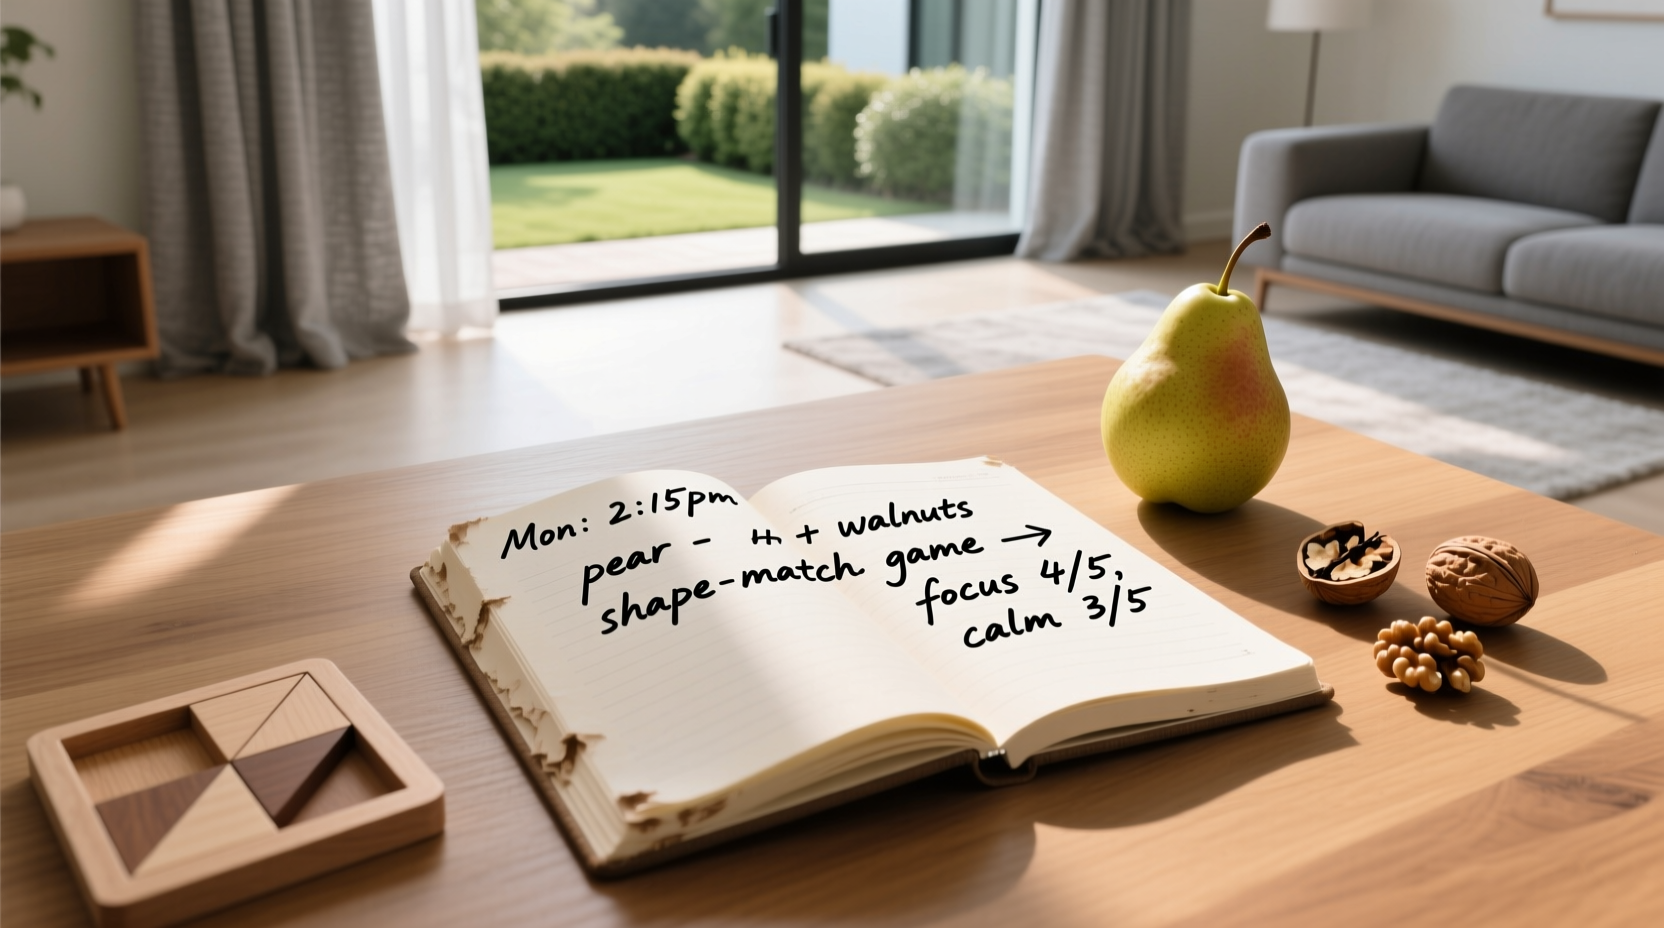 Mon: 2:15pm
pear - + walnuts
shape-match game →
focus 4/5,
calm 3/5